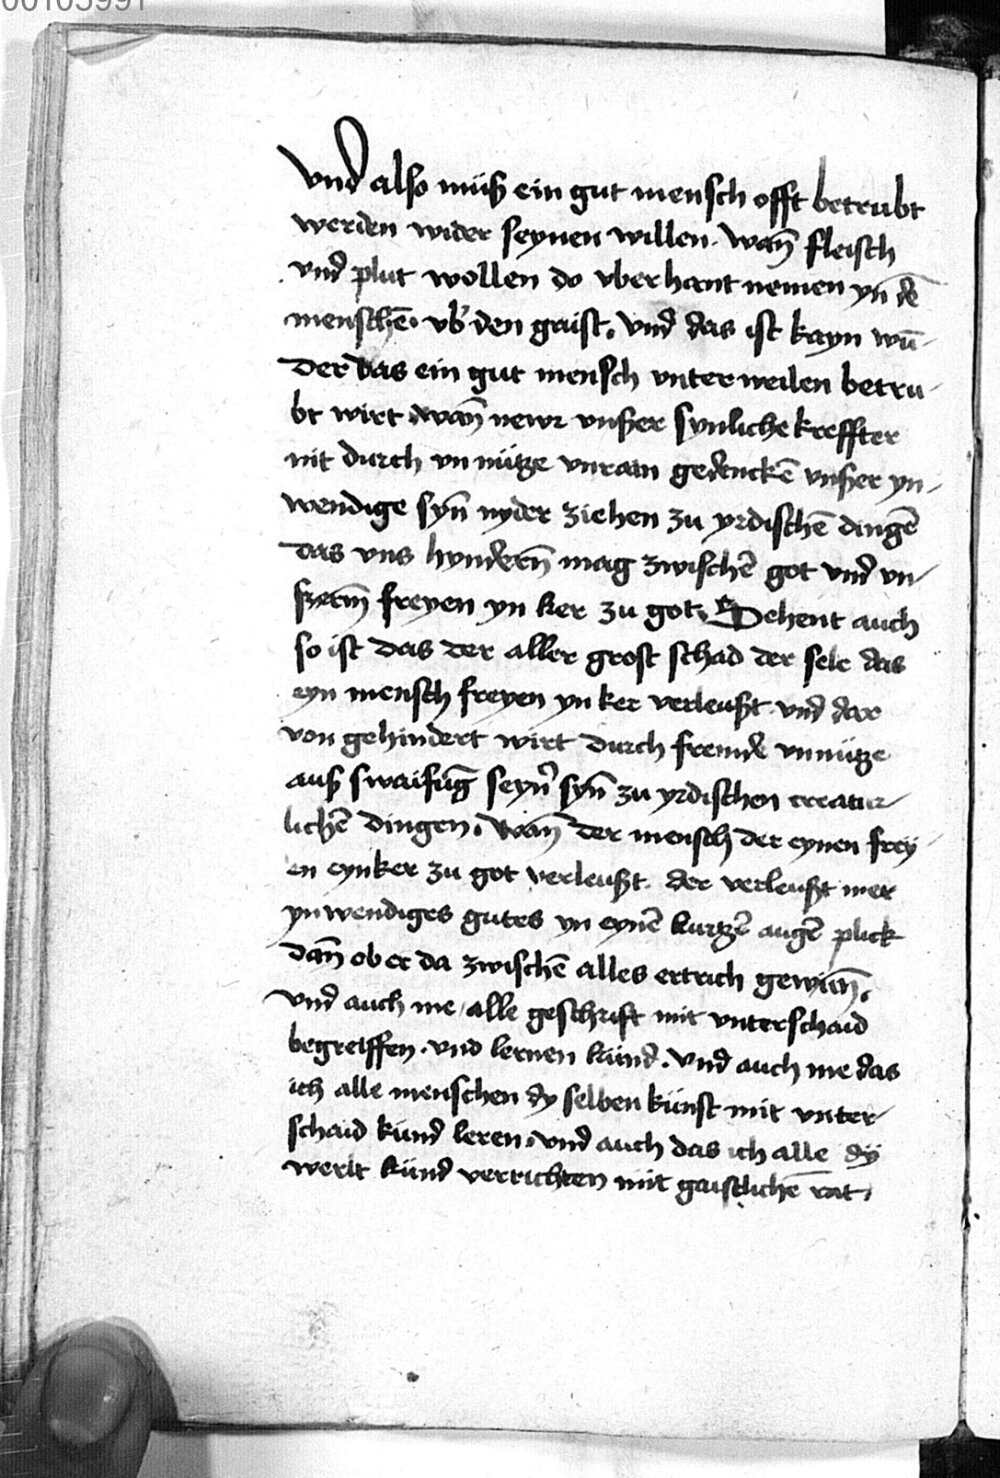 00105991
Vnd also müß ein gut mensch offt betrubt
werden wider seynen willen. wan̄ fleisch
vnd plut wollen do vber hant nemen yn̄ dē
menschē. vb̾ den gaist. vnd das ist kayn wū-
der das ein gut mensch vnter weilen betru-
bt wirt wan̄ newr vnßer synliche kreffter
nit durch vn nütze vnrain gedenckē vnßer yn-
wendige syn̄ nyder ziehen zu yrdischē dingē
das vns hyndern̄ mag zwischē got vnd vn-
szerm̄ freyen yn ker zu got. Sehent auch
so ist das der aller grost schad der sele das
eyn mensch freyen yn ker verleußt vnd dar
von gehindert wirt durch fremde vnnütze
auß swaifūg seyn̾ syn̄ zu yrdischen creatur-
lichē dingen. wan̄ der mensch der eynen frey-
en eynker zu got verleußt. der verleußt mer
ynwendiges gutes yn eynē kurtzē augē plick
dan̄ ob er da zwischē alles ertrich gewun̄.
vnd auch me alle geschrifft mit vnterschaid
begreiffen. vnd lernen künd. vnd auch me das
ich alle menschen dy selben künst mit vnter-
schaid künd leren. vnd auch das ich alle dÿ
werlt künd verrichten mit gaistlichē rat.